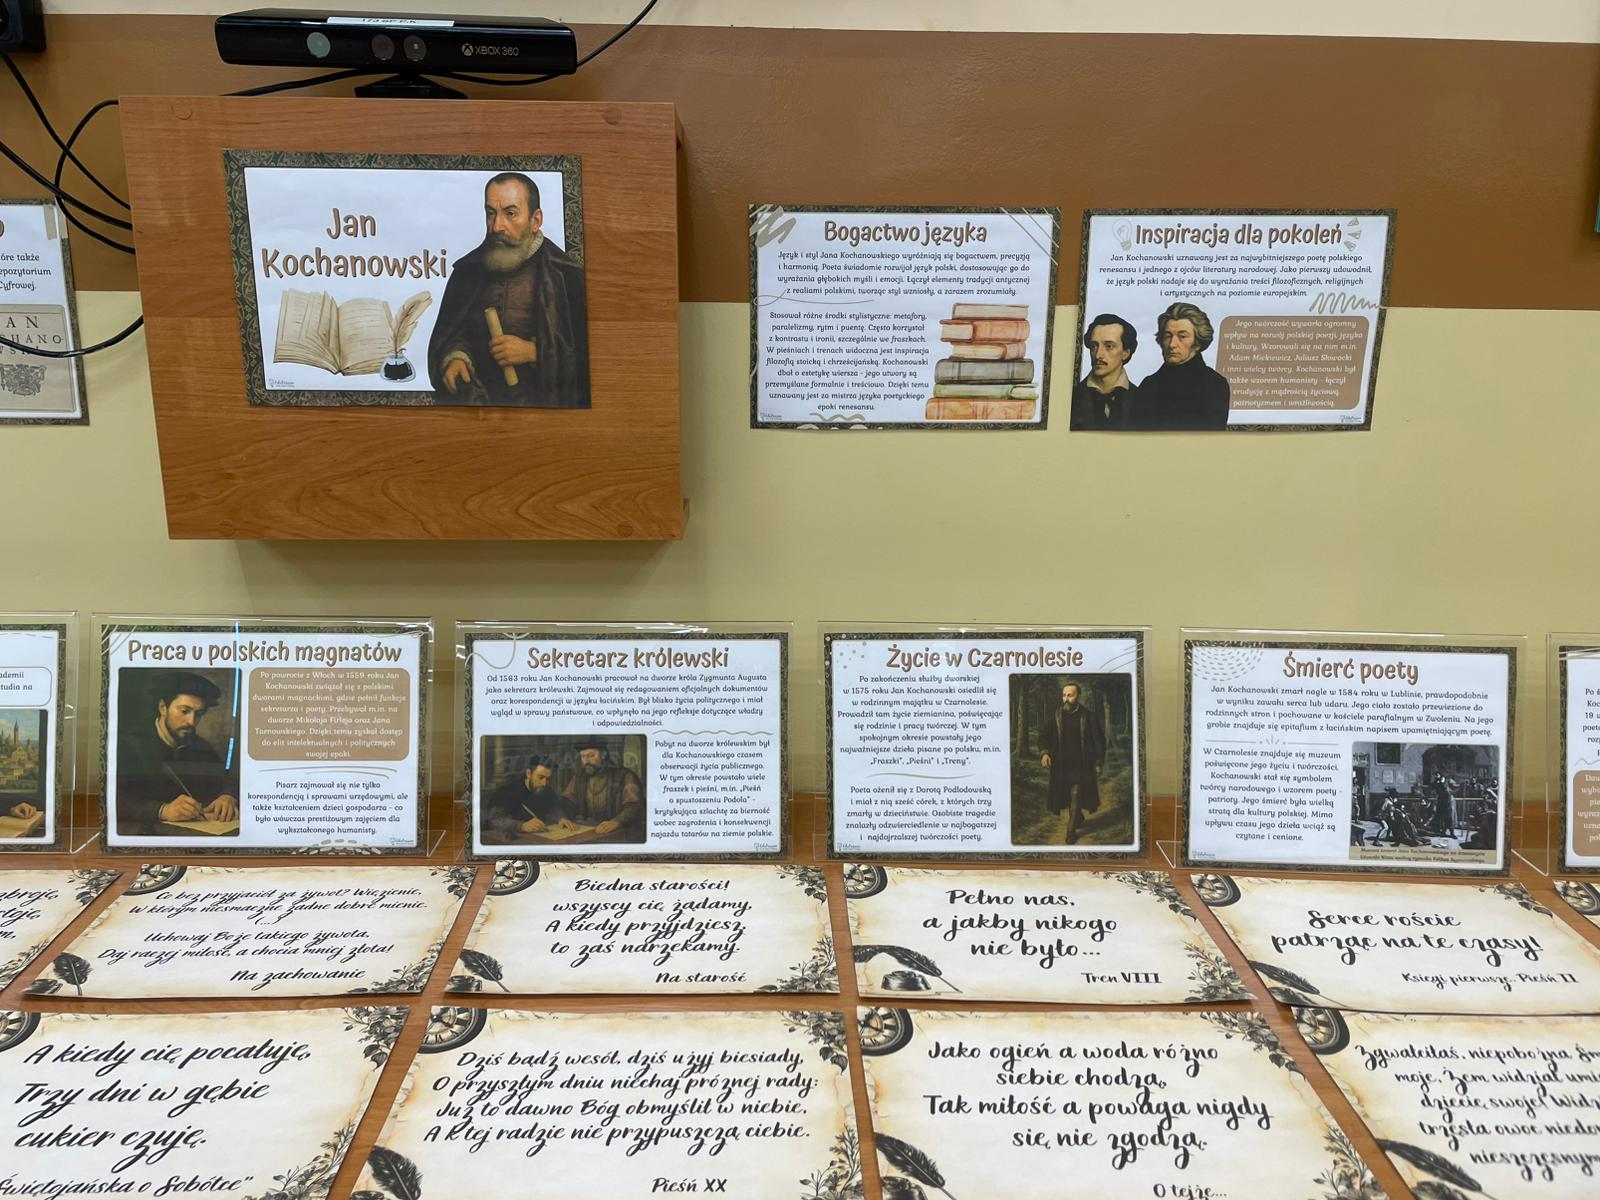 XBOX 360
Jan
Kochanowski
Bogactwo języka
Język i styl Jana Kochanowskiego wyróżniają się bogactwem, precyzją
i harmonią. Poeta świadomie rozwijał język polski, dostosowując go do
wyrażania głębokich myśli i emocji. Łączył elementy tradycji antycznej
z realiami polskimi, tworząc styl wzniosły, a zarazem zrozumiały.
Stosował różne środki stylistyczne: metafory,
paralelizmy, rytm i puentę. Często korzystał
z kontrastu i ironii, szczególnie we fraszkach.
W pieśniach i trenach widoczna jest inspiracja
filozofią stoicką i chrześcijańską. Kochanowski
dbał o estetykę wiersza - jego utwory są
przemyślane formalnie i treściowo. Dzięki temu
uznawany jest za mistrza języka poetyckiego
epoki renesansu.
Inspiracja dla pokoleń
Jan Kochanowski uznawany jest za najwybitniejszego poetę polskiego
renesansu i jednego z ojców literatury narodowej. Jako pierwszy udowodnił,
że język polski nadaje się do wyrażania treści filozoficznych, religijnych
i artystycznych na poziomie europejskim.
Jego twórczość wywarła ogromny
wpływ na rozwój polskiej poezji, języka
i kultury. Wzorowali się na nim m.in.
Adam Mickiewicz, Juliusz Słowacki
i inni wielcy twórcy. Kochanowski był
także wzorem humanisty - łączył
erudycję z mądrością życiową,
patriotyzmem i wrażliwością.
óre także
epozytorium
Cyfrowej.
Praca u polskich magnatów
Po powrocie z Włoch w 1559 roku Jan
Kochanowski związał się z polskimi
dworami magnackimi, gdzie pełnił funkcje
sekretarza i poety. Przebywał m.in. na
dworze Mikołaja Firleja oraz Jana
Tarnowskiego. Dzięki temu zyskał dostęp
do elit intelektualnych i politycznych
swojej epoki.
Pisarz zajmował się nie tylko
korespondencją i sprawami urzędowymi, ale
także kształceniem dzieci gospodarza - co
było wówczas prestiżowym zajęciem dla
wykształconego humanisty.
Sekretarz królewski
Od 1563 roku Jan Kochanowski pracował na dworze króla Zygmunta Augusta
jako sekretarz królewski. Zajmował się redagowaniem oficjalnych dokumentów
oraz korespondencji w języku łacińskim. Był blisko życia politycznego i miał
wgląd w sprawy państwowe, co wpłynęło na jego refleksje dotyczące władzy
i odpowiedzialności.
Pobyt na dworze królewskim był
dla Kochanowskiego czasem
obserwacji życia publicznego.
W tym okresie powstało wiele
fraszek i pieśni, m.in. „Pieśń
o spustoszeniu Podola" -
krytykująca szlachtę za bierność
wobec zagrożenia i konsekwencji
najazdu tatarów na ziemie polskie.
Życie w Czarnolesie
Po zakończeniu służby dworskiej
w 1575 roku Jan Kochanowski osiedlił się
w rodzinnym majątku w Czarnolesie.
Prowadził tam życie ziemianina, poświęcając
się rodzinie i pracy twórczej. W tym
spokojnym okresie powstały jego
najważniejsze dzieła pisane po polsku, m.in.
„Fraszki", „Pieśni" i „Treny".
Poeta ożenił się z Dorotą Podlodowską
i miał z nią sześć córek, z których trzy
zmarły w dzieciństwie. Osobiste tragedie
znalazły odzwierciedlenie w najbogatszej
i najdojrzalszej twórczości poety.
Śmierć poety
Jan Kochanowski zmarł nagle w 1584 roku w Lublinie, prawdopodobnie
w wyniku zawału serca lub udaru. Jego ciało zostało przewiezione do
rodzinnych stron i pochowane w kościele parafialnym w Zwoleniu. Na jego
grobie znajduje się epitafium z łacińskim napisem upamiętniającym poetę.
W Czarnolesie znajduje się muzeum
poświęcone jego życiu i twórczości.
Kochanowski stał się symbolem
twórcy narodowego i wzorem poety -
patrioty. Jego śmierć była wielką
stratą dla kultury polskiej. Mimo
upływu czasu jego dzieła wciąż są
czytane i cenione.
Co bez przyjaciół za żywot? Więzienie,
W którym niesmaczne żadne dobre mienie.
(...)
Uchowaj Boże takiego żywota,
Daj raczej miłość, a chocia mniej złota!
Na zachowanie
Biedna starości!
wszyscy cię żądamy,
A kiedy przyjdziesz,
to zaś narzekamy.
Na starość
Pełno nas,
a jakby nikogo
nie było...
Tren VIII
Serce roście
patrząc na te czasy!
Księgi pierwsze, Pieśń II
A kiedy cię pocałuję,
Trzy dni w gębie
cukier czuję.
Świętojańska o Sobótce"
Dziś bądź wesół, dziś użyj biesiady,
O przyszłym dniu niechaj próżnej rady:
Już to dawno Bóg obmyślił w niebie,
A k tej radzie nie przypuszczą ciebie.
Pieśń XX
Jako ogień a woda różno
siebie chodzą,
Tak miłość a powaga nigdy
się nie zgodzą.
O tejże...
Zgwałciłaś, niepobożna
moje, Żem widział